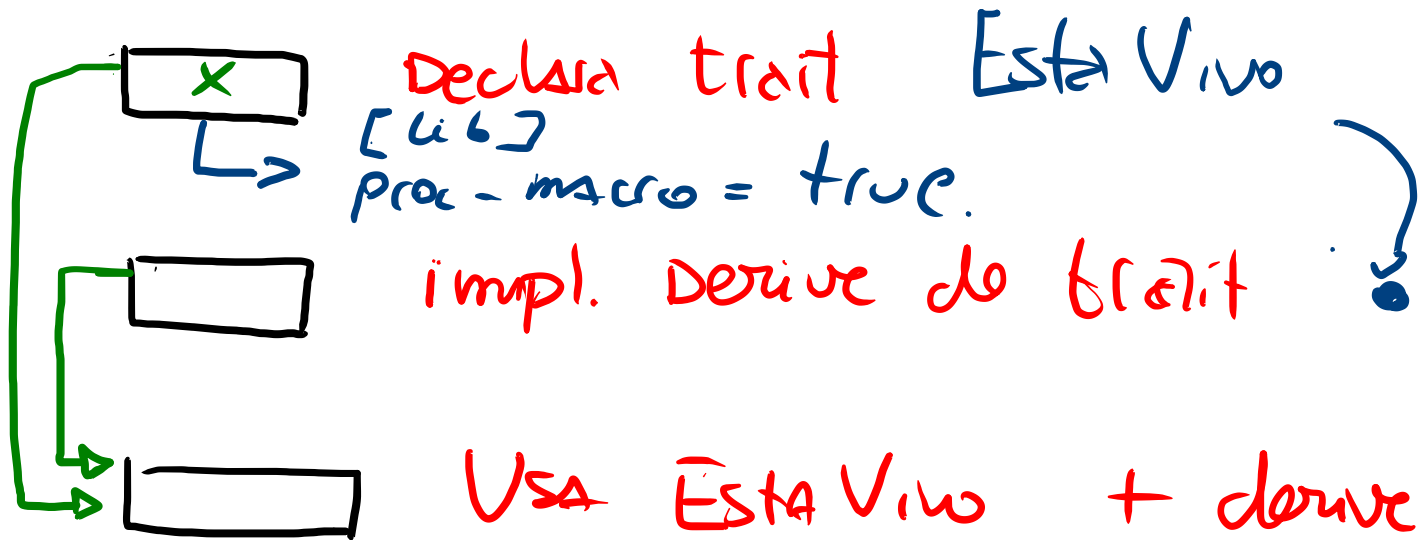 x Declara trait EstaVivo
[lib]
proc-macro = true.
impl. Derive de trait
Usa EstaVivo + derive